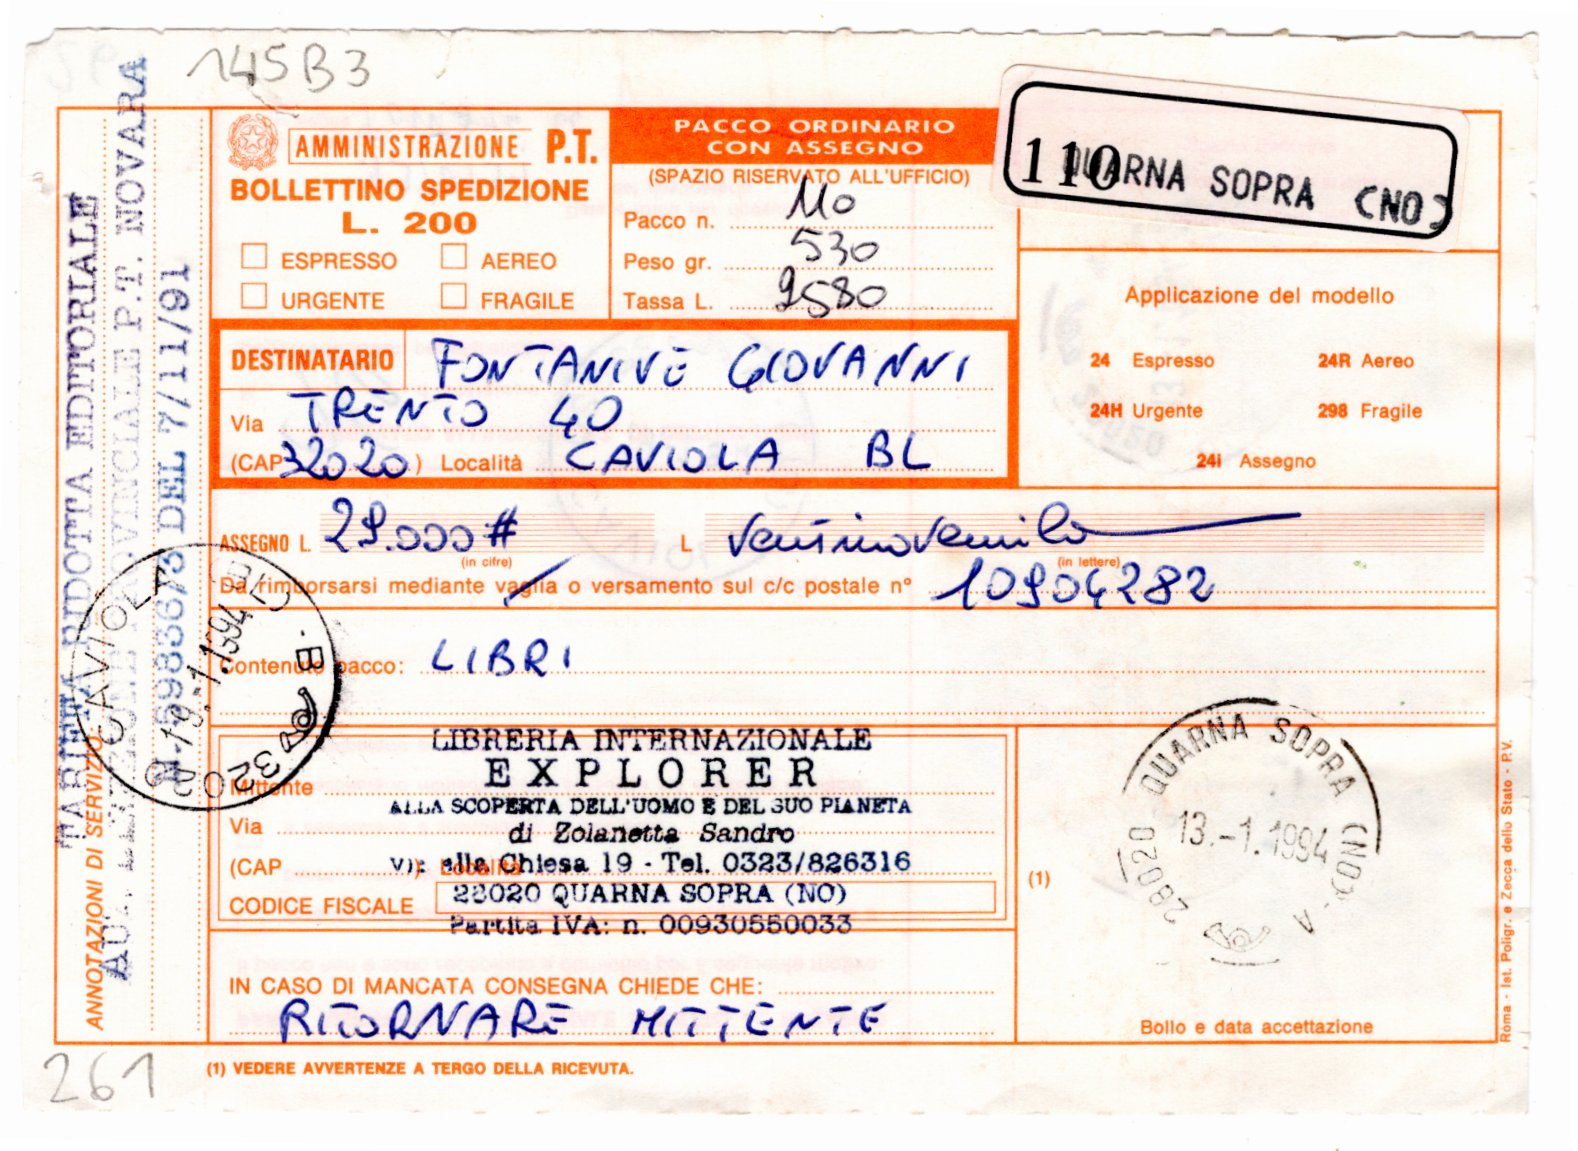 145B3
AMMINISTRAZIONE P.T.
BOLLETTINO SPEDIZIONE
L. 200
ESPRESSO AEREO
URGENTE FRAGILE
PACCO ORDINARIO
CON ASSEGNO
(SPAZIO RISERVATO ALL'UFFICIO)
Pacco n. 110
Peso gr. 530
Tassa L. 9580
110 QUARNA SOPRA (NO)
Applicazione del modello
24 Espresso 24R Aereo
24H Urgente 298 Fragile
24I Assegno
DESTINATARIO FONTANIVE GIOVANNI
Via TRENTO 40
(CAP 32020) Località CAVIOLA BL
ASSEGNO L. 29.000# L. Ventinovemila
(in cifre) (in lettere)
Da rimborsarsi mediante vaglia o versamento sul c/c postale n° 10904282
Contenuto pacco: LIBRI
Mittente
Via
(CAP ) Località
CODICE FISCALE
LIBRERIA INTERNAZIONALE
EXPLORER
ALLA SCOPERTA DELL'UOMO E DEL SUO PIANETA
di Zolanetta Sandro
Via alla Chiesa 19 - Tel. 0323/826316
28020 QUARNA SOPRA (NO)
Partita IVA: n. 00930550033
IN CASO DI MANCATA CONSEGNA CHIEDE CHE:
RITORNARE MITTENTE
(1)
28020 QUARNA SOPRA (NO) - A
13.-1.1994
Bollo e data accettazione
(1) VEDERE AVVERTENZE A TERGO DELLA RICEVUTA.
261
ANNOTAZIONI DI SERVIZIO
TARIFFA RIDOTTA EDITORIALE
AUT. DIREZIONE PROVINCIALE P.T. NOVARA
DEL 7/11/91
32020 CAVIOLA
19.-1.1994
Roma - Ist. Poligr. e Zecca dello Stato - P.V.